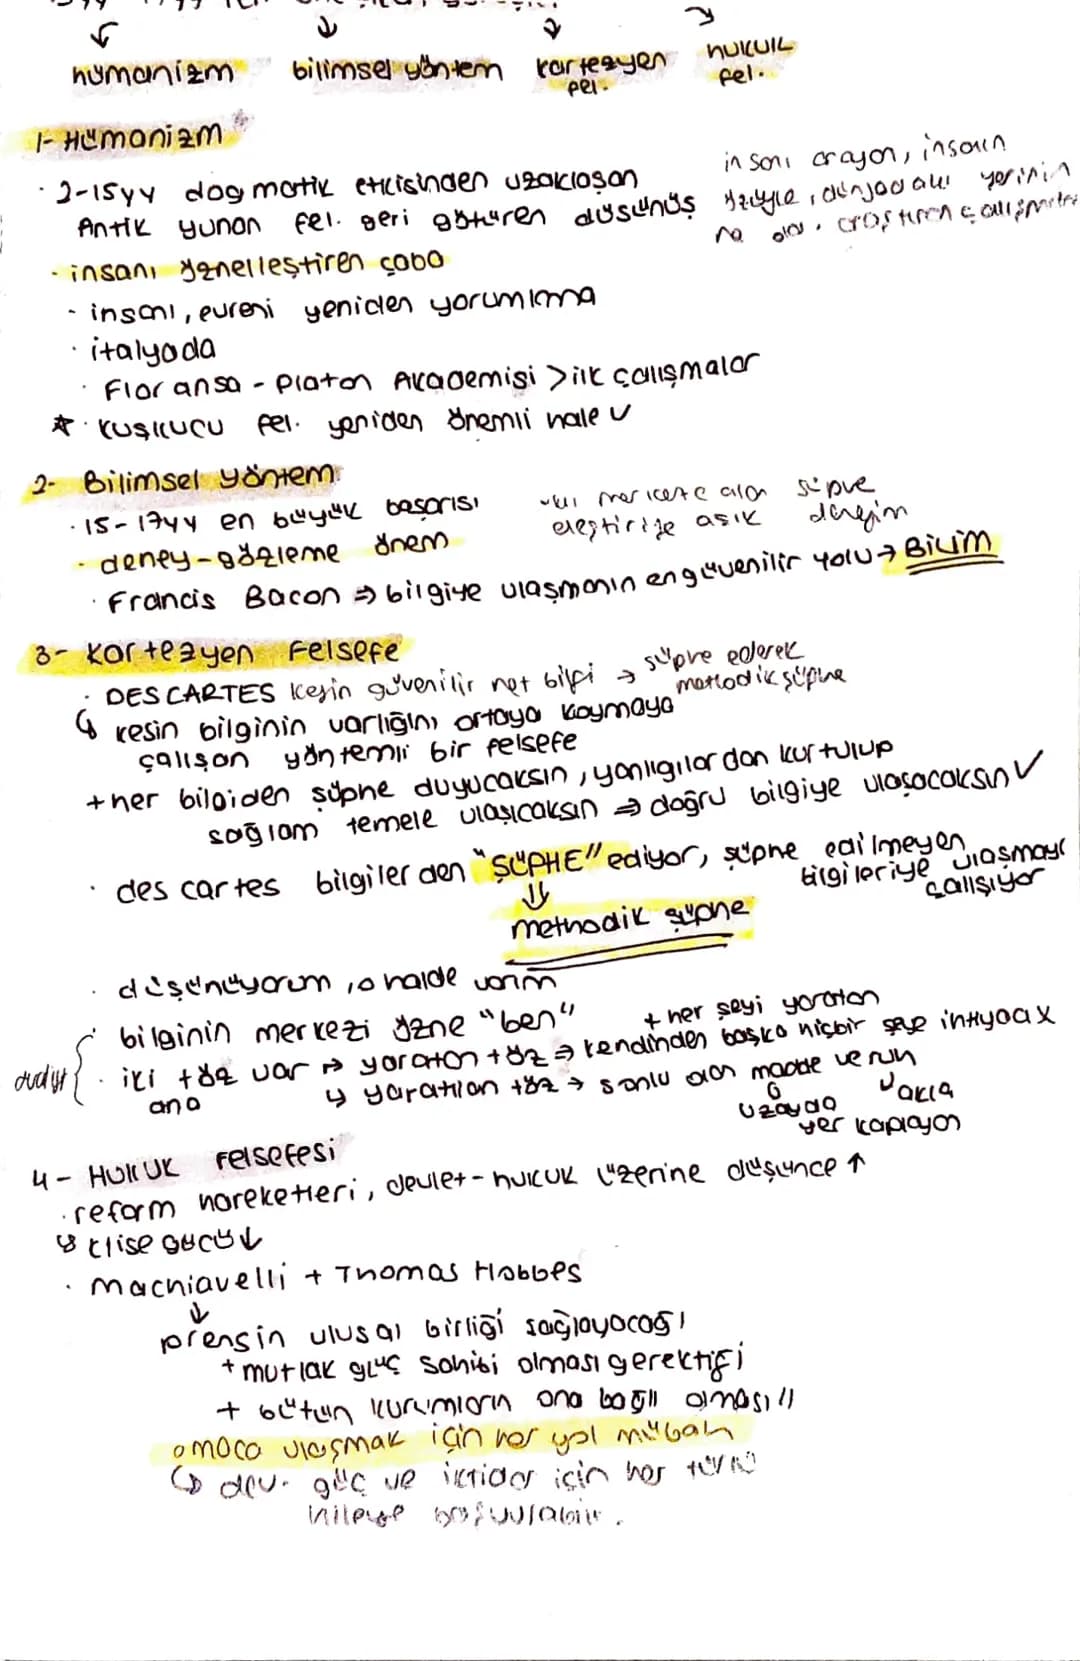 hümanizm bilimsel yöntem kartezyen fel. hukuk fel.
1- Hümanizm
· 2-15yy dogmatik etkisinden uzaklaşan
Antik yunan fel. geri götüren düşünüş
insanı arayan, insanın
özüyle, dünyadaki yerinin
ne araştıran çalışmalar
· insanı yznelleştiren çaba
· insanı, evreni yeniden yorumlama
· italyada
· Floransa - Platon Akademisi > ilk çalışmalar
* · kuşkucu fel. yeniden önemli hale
2- Bilimsel yöntem
· 15-17yy en büyük başarısı
· deney-gözleme önem
merkeze alan şüphe
eleştiriye açık deneyim
· Francis Bacon ⇒ bilgiye ulaşmanın en güvenilir yolu → BiLiM
3- Kartezyen Felsefe
· DESCARTES kesin güvenilir net bilgi → şüphe ederek
metodik şüphe
↳ kesin bilginin varlığını ortaya koymaya
çalışan yöntemli bir felsefe
+ her bilgiden şüphe duyucaksın, yanlıgılardan kurtulup
sağlam temele ulaşıcaksın ⇒ doğru bilgiye ulaşacaksın ✓
· des cartes bilgilerden "ŞÜPHE" ediyor, şüphe edilmeyen
bilgileriye ulaşmaya
çalışıyor
⇓
methodik şüphe
· düşünüyorum, o halde varım
· bilginin merkezi özne "ben"
düalist { · iki töz var → yaratan töz ⇒ kendinden başka hiçbir şeye ihtiyaç x
+ her şeyi yaratan
ana
↳ yaratılan töz → sonlu olan madde ve ruh
uzayda
yer kaplayan
akla
4- HUKUK Felsefesi
· reform hareketleri, devlet-hukuk üzerine düşünce ↑
↳ klise gücü ↓
· Machiavelli + Thomas Hobbes
↓
prensin ulusal birliği sağlayacağı
+ mutlak güç sahibi olması gerektiği
+ bütün kurumların ona bağlı olması //
amaca ulaşmak için her yol mübah
↳ dev. güç ve iktidar için her türlü
hileye başvurulabilir.